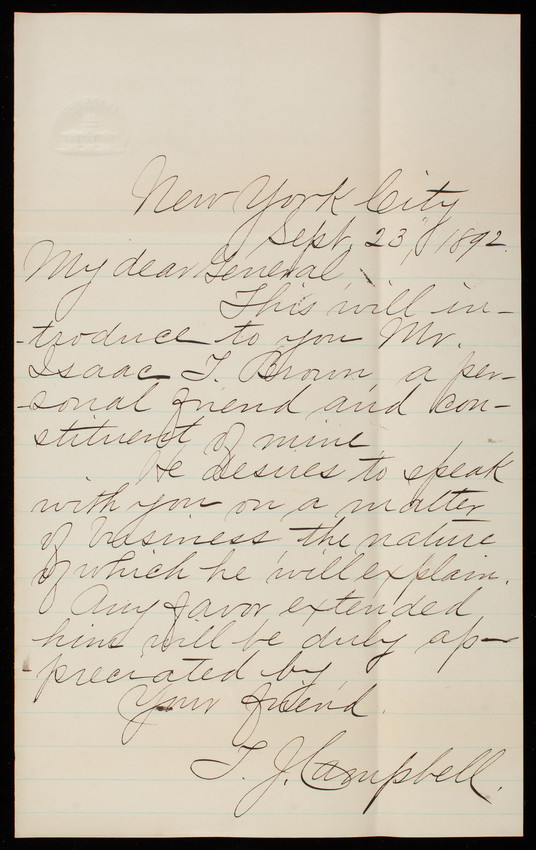 New York City
Sept. 23, 1892.
My dear General
This will in-
-troduce to you Mr.
Isaac T. Brown, a per-
-sonal friend and con-
stituent of mine
He desires to speak
with you on a matter
of business the nature
of which he will explain.
Any favor extended
him will be duly ap-
-preciated by
Your friend.
T. J. Campbell.